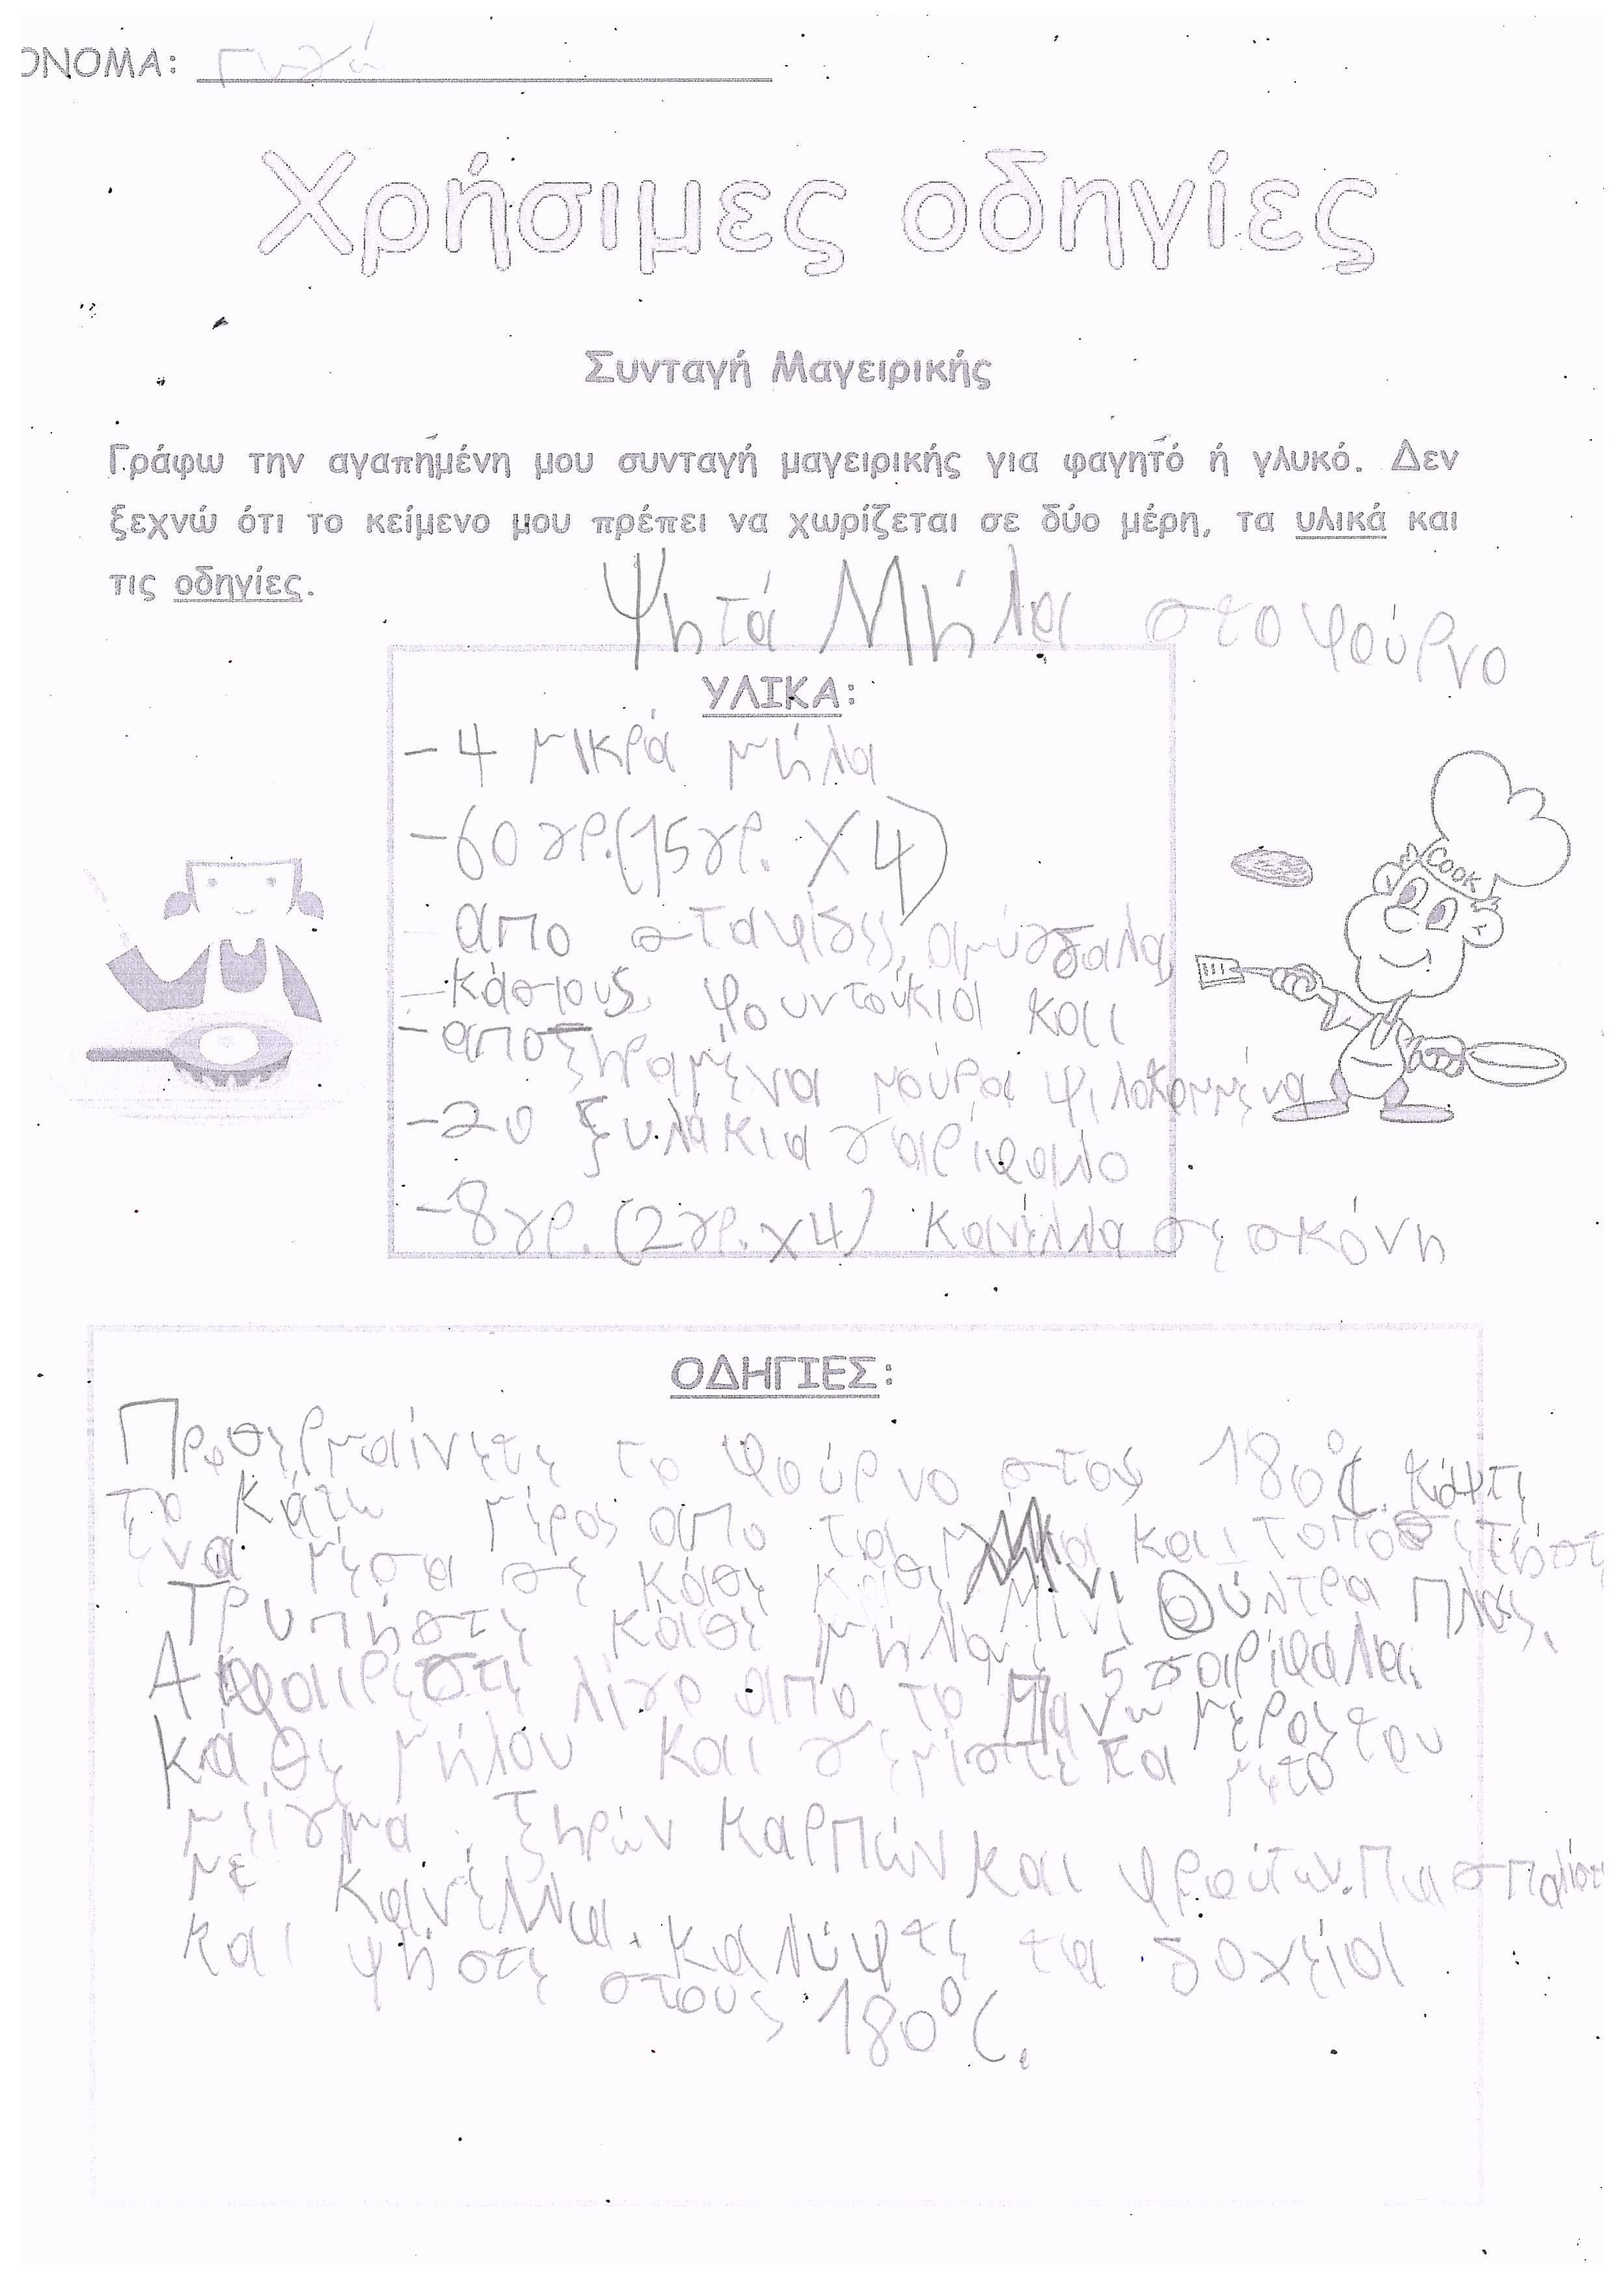 ΟΝΟΜΑ:
Χρήσιμες οδηγίες
Συνταγή Μαγειρικής
Γράφω την αγαπημένη μου συνταγή μαγειρικής για φαγητό ή γλυκό. Δεν
ξεχνώ ότι το κείμενο μου πρέπει να χωρίζεται σε δύο μέρη, τα υλικά και
τις οδηγίες.
Ψητά Μήλα στο φούρνο
ΥΛΙΚΑ:
-4 μικρά μήλα
-60 γρ.(15γρ. Χ4)
-απο σταφίδες, αμύγδαλα,
-κάσιους φουντούκια και
-αποξηραμένα μούρα ψιλοκομμένα
-20 ξυλάκια γαρίφαλο
-8γρ. (2γρ. χ4) κανέλλα σε σκόνη
COOK
ΟΔΗΓΙΕΣ:
Προθερμαίνετε το φούρνο στους 180°C. Κόψτε
το κάτω μέρος απο τα και τοποθετήστε
ένα μέσα σε κάθε Μίνι Ούλτρα Πλας.
Τρυπήστε κάθε μήλο με 5 γαρίφαλα.
Αφαιρέστε λίγο απο το Πάνω μέρος του
κάθε μήλου και γεμίστε τα με το
μείγμα ξηρών καρπών και φρούτων. Πασπαλίστε
με κανέλλα. Καλύψτε τα δοχεία
και ψήστε στους 180°C.